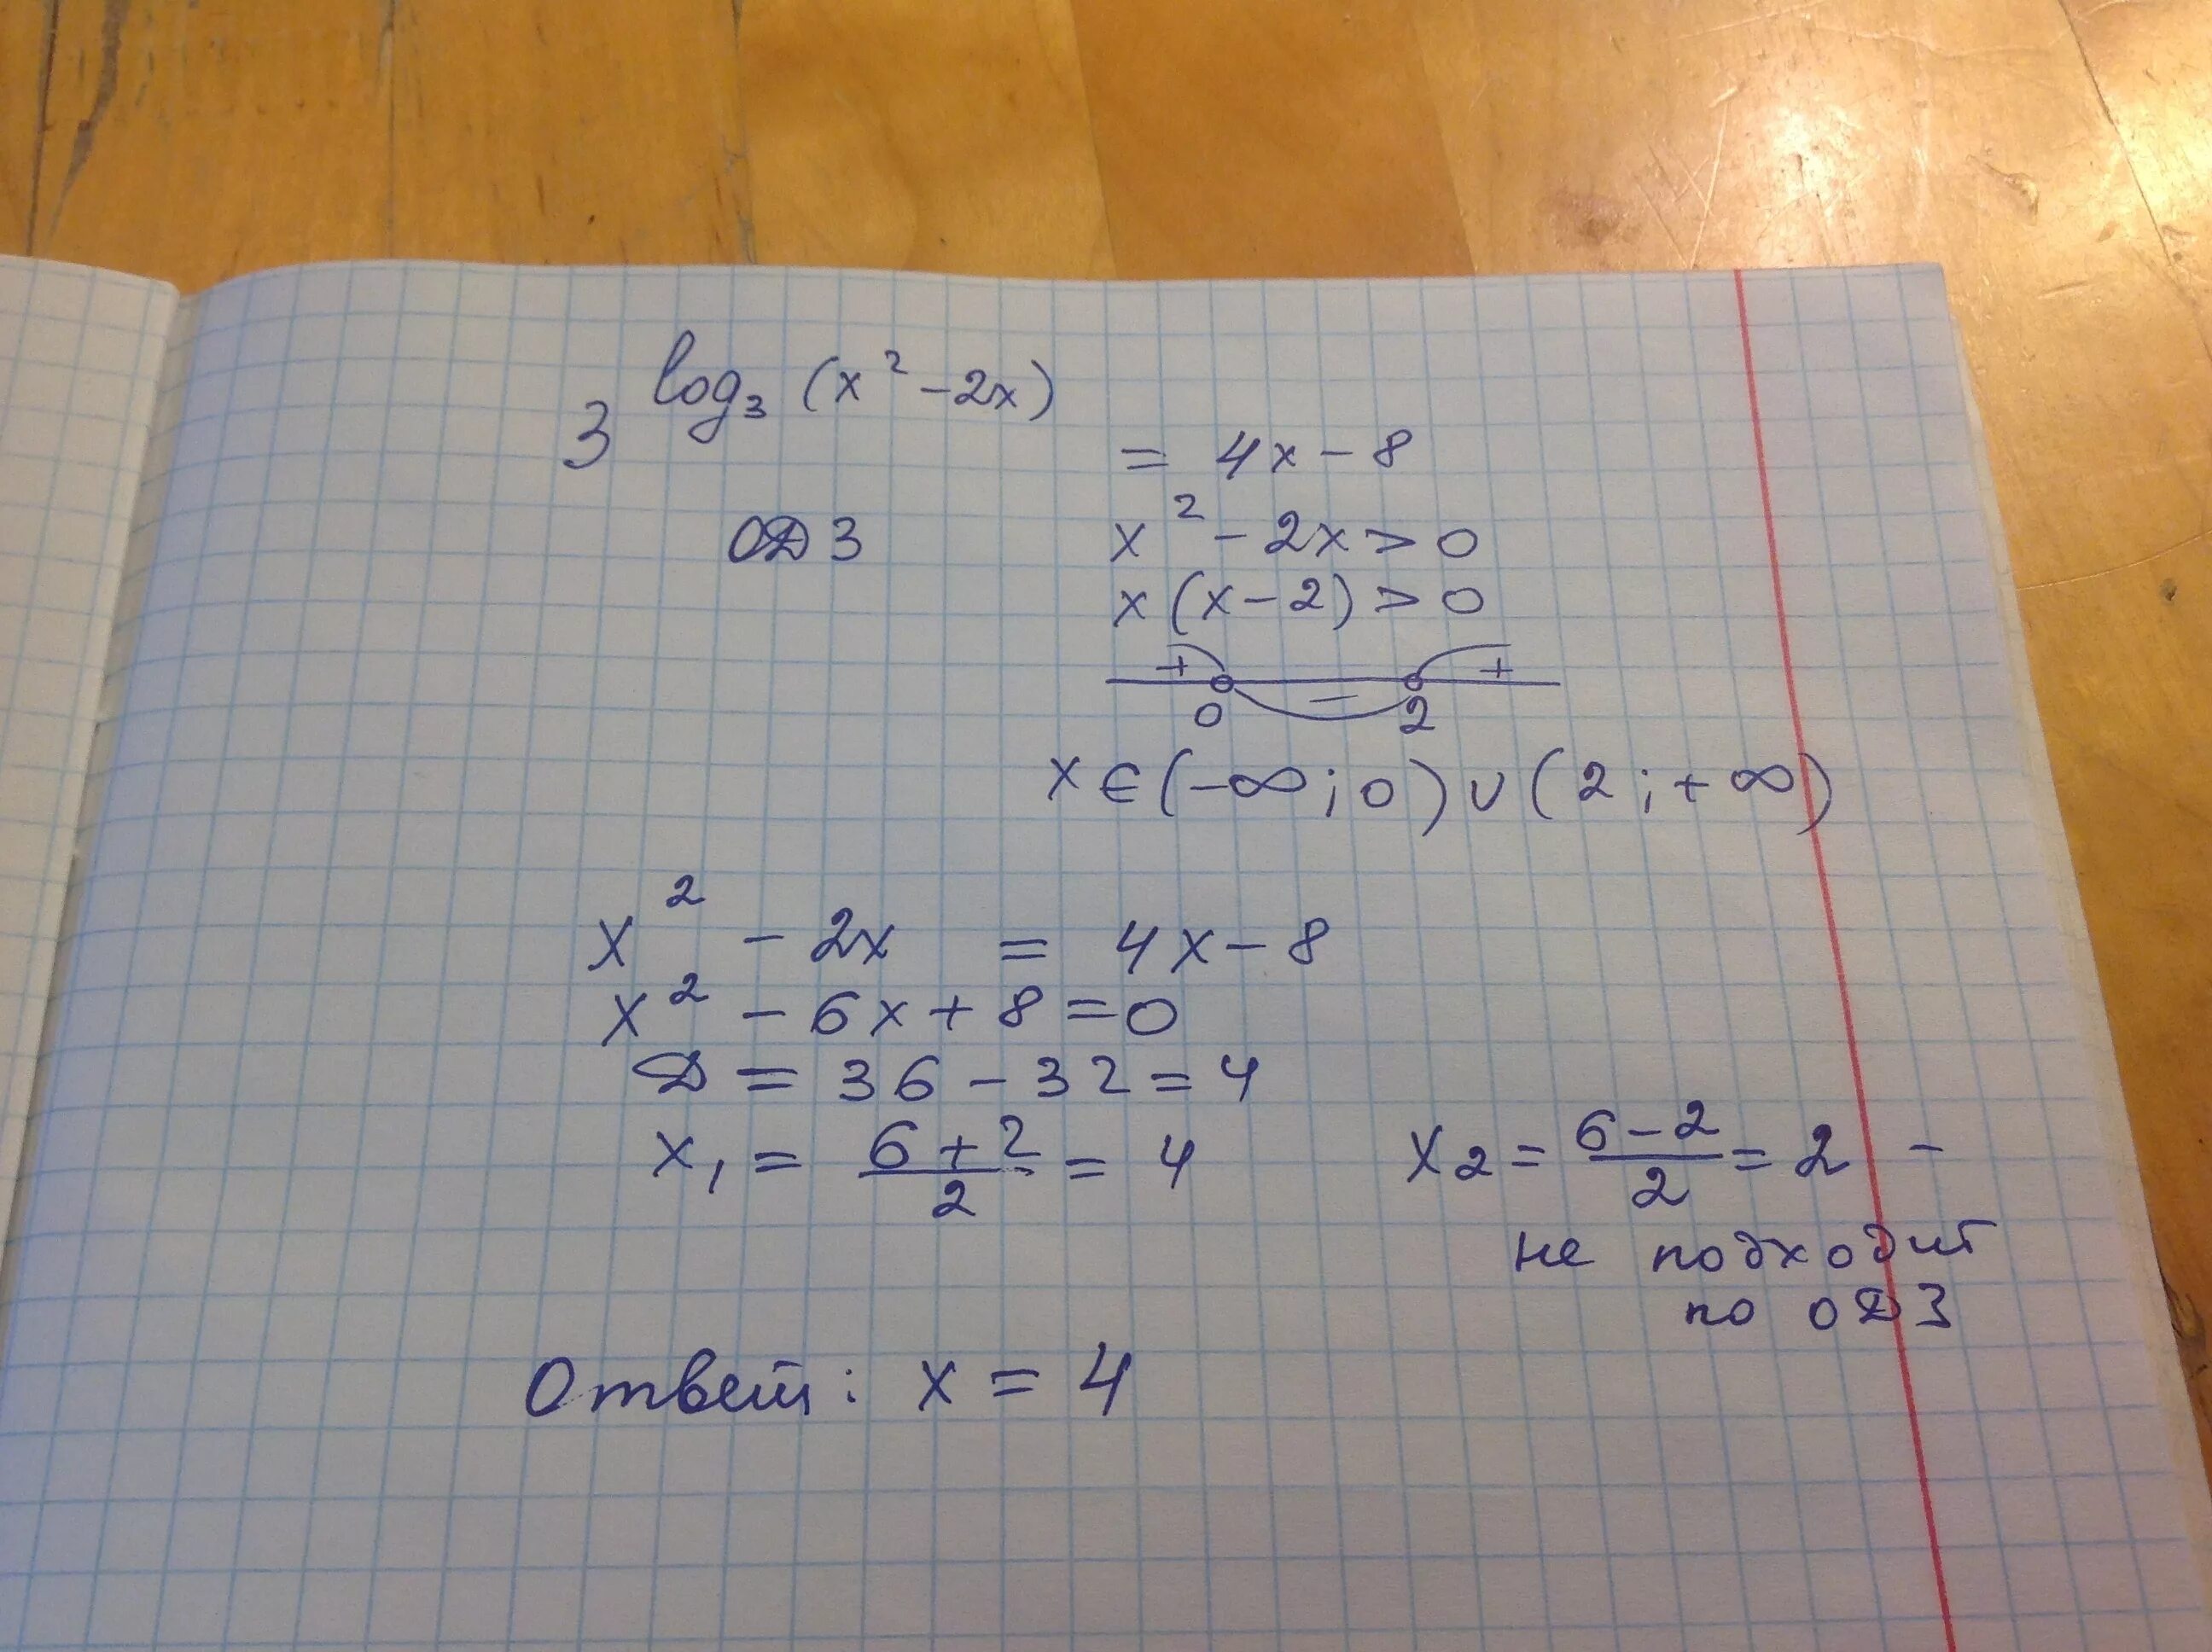 3^log₃(x²-2x) = 4x-8
ОДЗ x²-2x>0
x(x-2)>0
+ - +
0 2
x∈(-∞;0)∪(2;+∞)
x²-2x = 4x-8
x²-6x+8=0
Д=36-32=4
x₁ = (6+2)/2 = 4 x₂ = (6-2)/2 = 2 -
не подходит
по ОДЗ
Ответ: x = 4